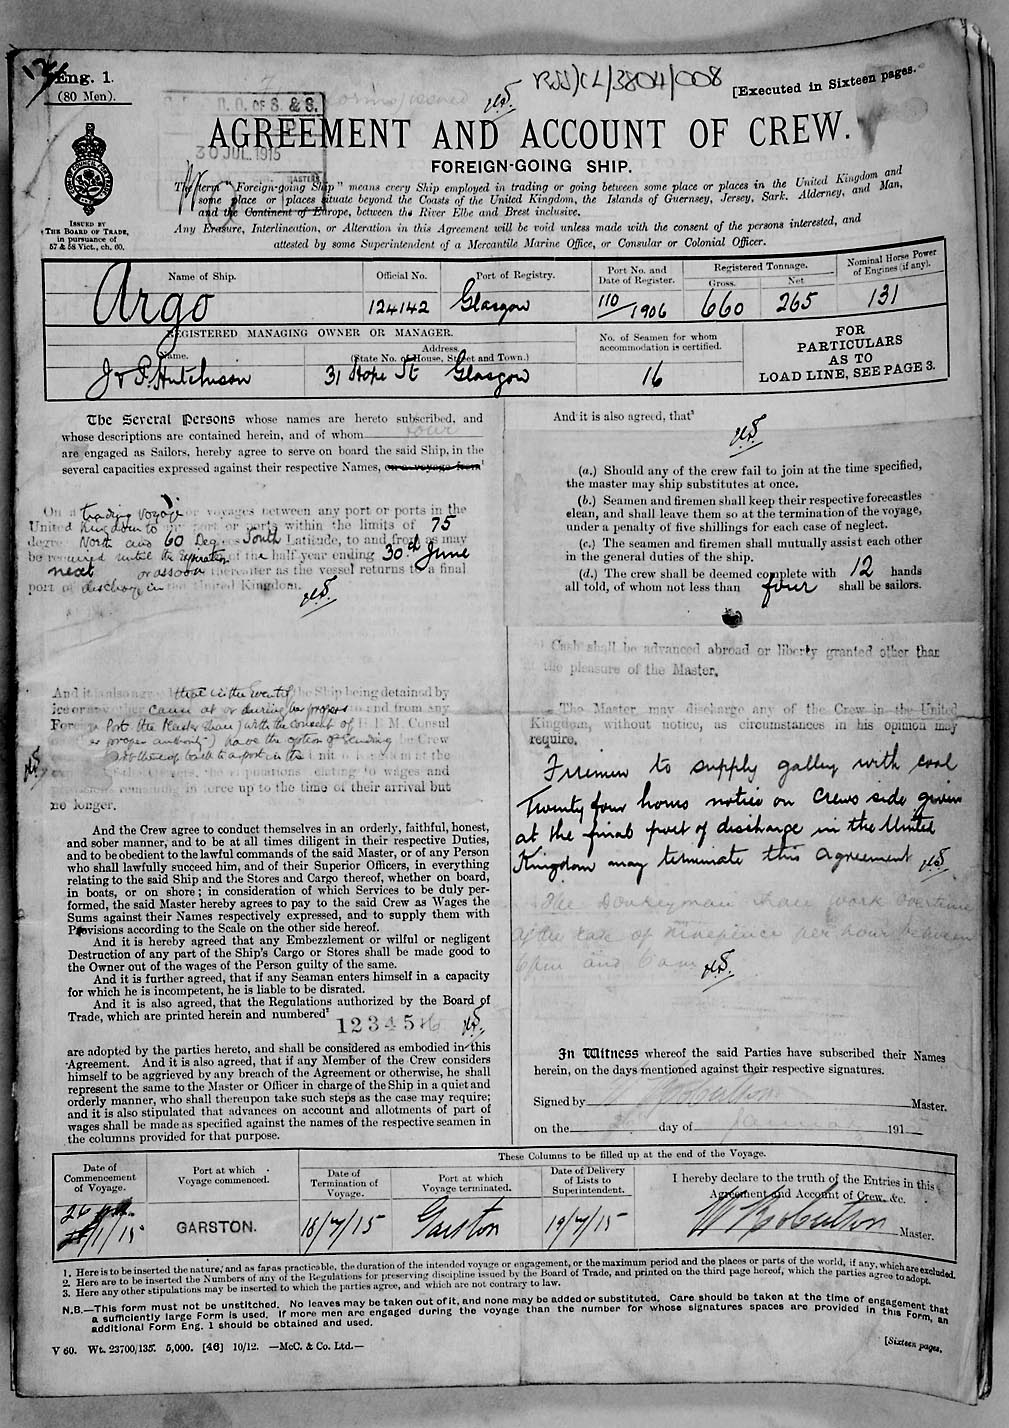 Eng. 1.
(80 Men).
RSS/CL/3804/008
[Executed in Sixteen pages.
D. OF S. & S.
30 JUL. 1915
AGREEMENT AND ACCOUNT OF CREW.
FOREIGN-GOING SHIP.
The term "Foreign-going Ship" means every Ship employed in trading or going between some place or places in the United Kingdom and
some place or places situate beyond the Coasts of the United Kingdom, the Islands of Guernsey, Jersey, Sark, Alderney, and Man,
and the Continent of Europe, between the River Elbe and Brest inclusive.
Any Erasure, Interlineation, or Alteration in this Agreement will be void unless made with the consent of the persons interested, and
attested by some Superintendent of a Mercantile Marine Office, or Consular or Colonial Officer.
ISSUED BY
THE BOARD OF TRADE,
in pursuance of
57 & 58 Vict., ch. 60.
Name of Ship.
Official No.
Port of Registry.
Port No. and
Date of Register.
Registered Tonnage.
Gross.
Net
Nominal Horse Power
of Engines (if any).
Argo
124142
Glasgow
110/1906
660
265
131
REGISTERED MANAGING OWNER OR MANAGER.
Name.
Address.
(State No. of House, Street and Town.)
No. of Seamen for whom
accommodation is certified.
FOR
PARTICULARS
AS TO
LOAD LINE, SEE PAGE 3.
J & P. Hutchison
31 Hope St Glasgow
16
The Several Persons whose names are hereto subscribed, and
whose descriptions are contained herein, and of whom four
are engaged as Sailors, hereby agree to serve on board the said Ship, in the
several capacities expressed against their respective Names, on a voyage from¹
On a trading voyage or voyages between any port or ports in the
United Kingdom to port or ports within the limits of 75
degrees North and 60 Degrees South Latitude, to and from as may
be required until the expiration of the half year ending 30th June
next or as soon thereafter as the vessel returns to a final
port of discharge in the United Kingdom.
And it is also agreed that in the event of the Ship being detained by
ice or any other cause at or during her progress to and from any
Foreign Port the Master shall (with the consent of H.B.M. Consul
or proper authority) have the option of sending the Crew
wages and
remaining in force up to the time of their arrival but
no longer.
And the Crew agree to conduct themselves in an orderly, faithful, honest,
and sober manner, and to be at all times diligent in their respective Duties,
and to be obedient to the lawful commands of the said Master, or of any Person
who shall lawfully succeed him, and of their Superior Officers, in everything
relating to the said Ship and the Stores and Cargo thereof, whether on board,
in boats, or on shore; in consideration of which Services to be duly per-
formed, the said Master hereby agrees to pay to the said Crew as Wages the
Sums against their Names respectively expressed, and to supply them with
Provisions according to the Scale on the other side hereof.
And it is hereby agreed that any Embezzlement or wilful or negligent
Destruction of any part of the Ship's Cargo or Stores shall be made good to
the Owner out of the wages of the Person guilty of the same.
And it is further agreed, that if any Seaman enters himself in a capacity
for which he is incompetent, he is liable to be disrated.
And it is also agreed, that the Regulations authorized by the Board of
Trade, which are printed herein and numbered²
1 2 3 4 5 & 6
are adopted by the parties hereto, and shall be considered as embodied in this
Agreement. And it is also agreed, that if any Member of the Crew considers
himself to be aggrieved by any breach of the Agreement or otherwise, he shall
represent the same to the Master or Officer in charge of the Ship in a quiet and
orderly manner, who shall thereupon take such steps as the case may require;
and it is also stipulated that advances on account and allotments of part of
wages shall be made as specified against the names of the respective seamen in
the columns provided for that purpose.
And it is also agreed, that³
(a.) Should any of the crew fail to join at the time specified,
the master may ship substitutes at once.
(b.) Seamen and firemen shall keep their respective forecastles
clean, and shall leave them so at the termination of the voyage,
under a penalty of five shillings for each case of neglect.
(c.) The seamen and firemen shall mutually assist each other
in the general duties of the ship.
(d.) The crew shall be deemed complete with 12 hands
all told, of whom not less than four shall be sailors.
Cash shall be advanced abroad or liberty granted other than
at the pleasure of the Master.
The Master may discharge any of the Crew in the United
Kingdom, without notice, as circumstances in his opinion may
require.
Firemen to supply galley with coal
Twenty four hours notice on Crews side given
at the final port of discharge in the United
Kingdom may terminate this Agreement
The Donkeyman shall work overtime
at the rate of ninepence per hour between
6pm and 6am
In Witness whereof the said Parties have subscribed their Names
herein, on the days mentioned against their respective signatures.
Signed by W Robertson Master.
on the day of January 191
These Columns to be filled up at the end of the Voyage.
Date of
Commencement
of Voyage.
Port at which
Voyage commenced.
Date of
Termination of
Voyage.
Port at which
Voyage terminated.
Date of Delivery
of Lists to
Superintendent.
I hereby declare to the truth of the Entries in this
Agreement and Account of Crew, &c.
/1/15
GARSTON.
18/7/15
Garston
19/7/15
W Robertson Master.
1. Here is to be inserted the nature, and as far as practicable, the duration of the intended voyage or engagement, or the maximum period and the places or parts of the world, if any, which are excluded.
2. Here are to be inserted the Numbers of any of the Regulations for preserving discipline issued by the Board of Trade, and printed on the third page hereof, which the parties agree to adopt.
3. Here any other stipulations may be inserted to which the parties agree, and which are not contrary to law.
N.B.—This form must not be unstitched. No leaves may be taken out of it, and none may be added or substituted. Care should be taken at the time of engagement that
a sufficiently large Form is used. If more men are engaged during the voyage than the number for whose signatures spaces are provided in this Form, an
additional Form Eng. 1 should be obtained and used.
V 60. Wt. 23700/135. 5,000. [46] 10/12. —McC. & Co. Ltd.—
[Sixteen pages.